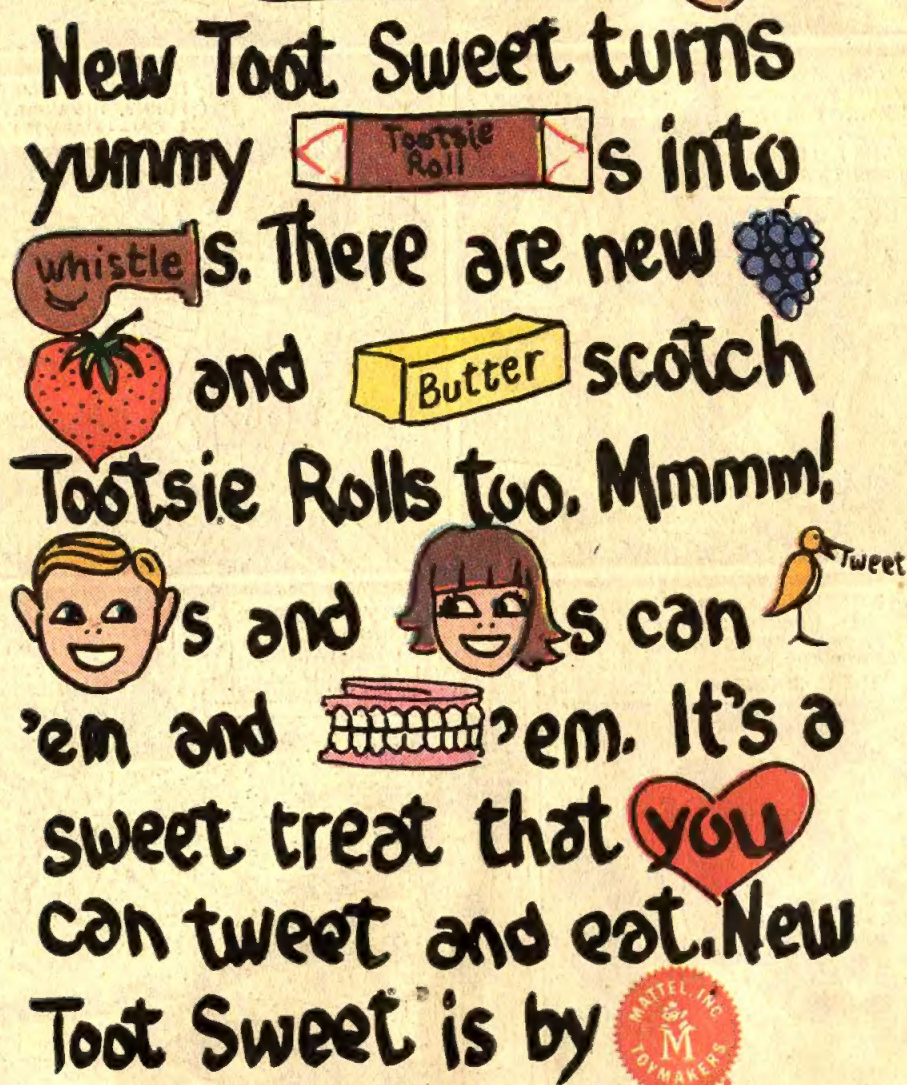 New Toot Sweet turns
yummy Tootsie Roll s into
whistle s. There are new
and Butter scotch
Tootsie Rolls too. Mmmm!
s and s can Tweet
'em and 'em. It's a
sweet treat that you
can tweet and eat. New
Toot Sweet is by MATTEL, INC. M TOYMAKERS